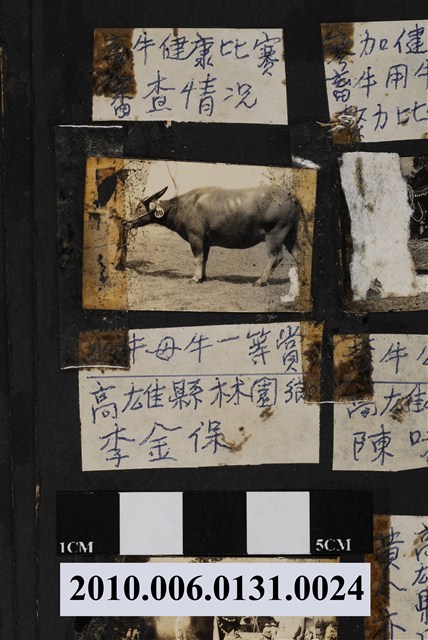 牛健康比賽
畜審查情况
加健
畜牛用牛
力比
牛母牛一等賞
高雄縣林園鄉
李金保
牛
高雄
陳
高
雄
縣
貴
1CM
5CM
2010.006.0131.0024